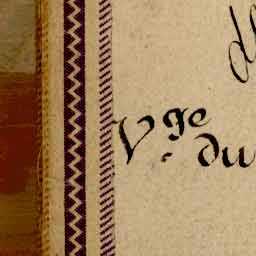 d
Vᵍᵉ du